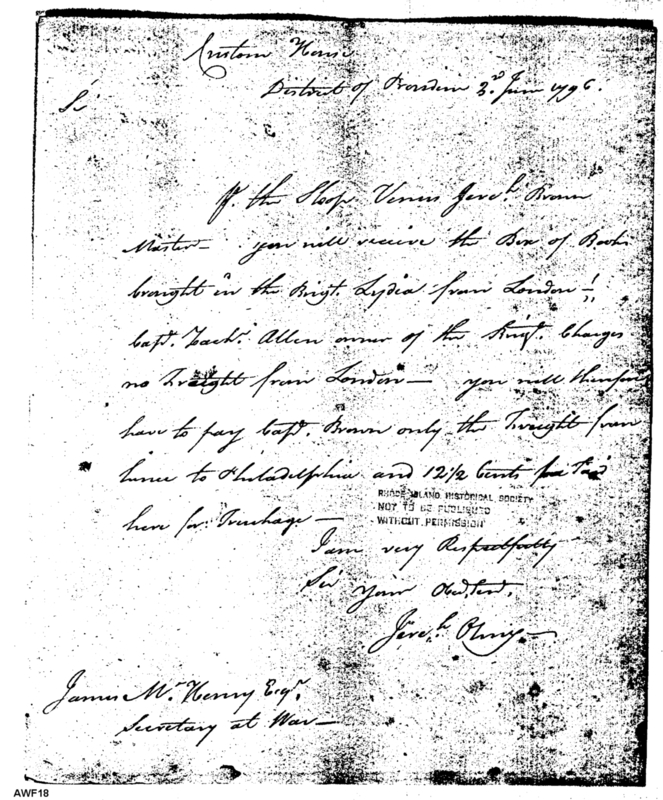 Custom House
District of Providence 3.d June 1796.
Sir
P. the Sloop Venus Jere.h Brown
Master— you will receive the Box of Books
brought in the Brigt. Lydia from London—
Capt. Zach.r Allen owner of the Brigt. Charges
no Freight from London— you will therefore
have to pay Capt. Brown only the Freight from
hence to Philadelphia and 12 1/2 Cents Paid
here for Truckage—
I am very Respectfully
Sir
your Obed. Servt.
Jere.h Olney—
James McHenry Esqr.
Secretary at War—
RHODE ISLAND HISTORICAL SOCIETY
NOT TO BE PUBLISHED
WITHOUT PERMISSION
AWF18